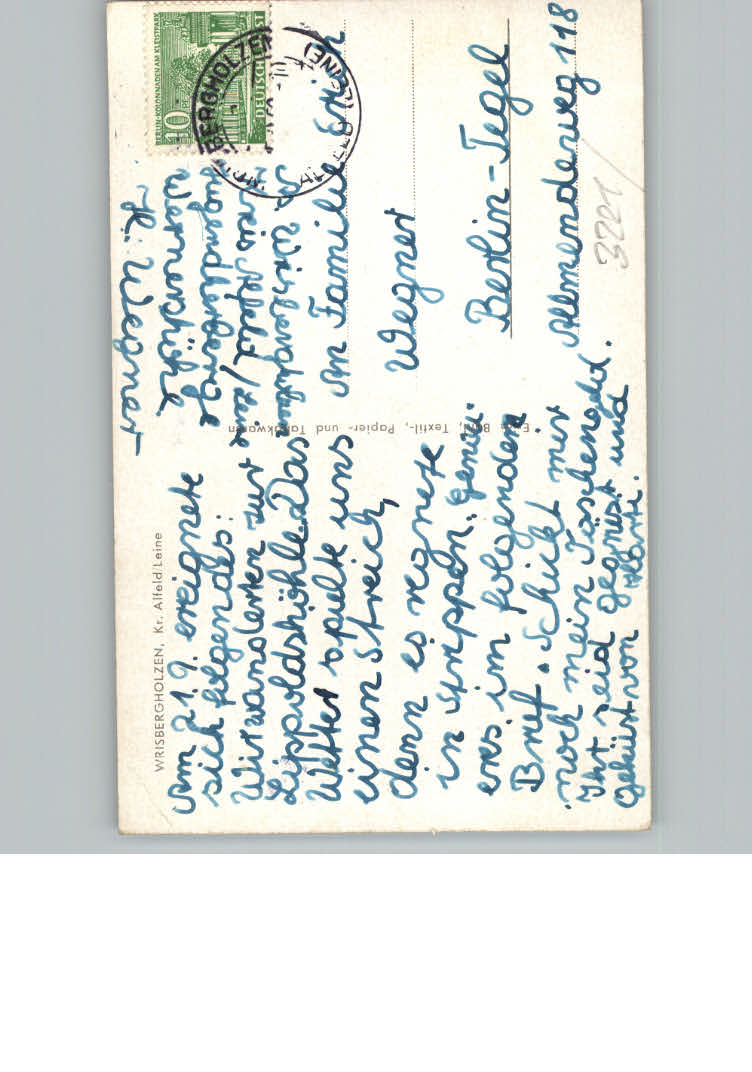 WRISBERGHOLZEN, Kr. Alfeld/Leine
Am 21.9. ereignete
sich folgendes:
Wir wanderten zur
Lippoldshöhle. Das
Wetter spielte uns
einen Streich,
denn es regnete
in Strippen. Genau-
eres im folgenden
Brief. Schickt mir
noch mein Taschengeld.
Ihr seid gegrüsst und
geküsst von
H. Wegner
Wernershöhe
Jugendherberge
Kreis Alfeld/Leine
Wrisbergholzen
BERLIN-KOLONNADEN AM KLEISTPARK
10
DEUTSCHE POST
WRISBERGHOLZEN
ALFELD (LEINE)
An Familie Erich
Wegner
Berlin-Tegel
Allmendeweg 118
3221
Textil-, Papier- und Tabakwaren